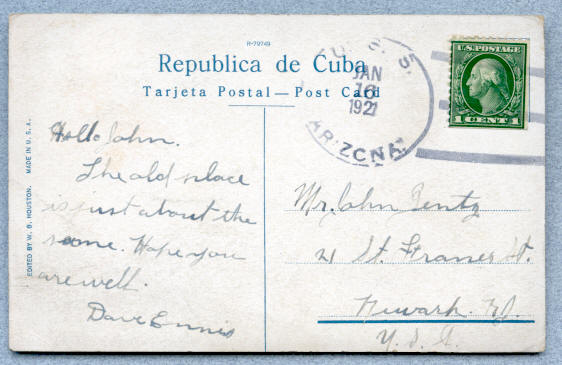 R-79749
Republica de Cuba
Tarjeta Postal — Post Card
U. S. S.
JAN
16
1921
ARIZONA
U.S. POSTAGE
1 CENT 1
Hello John.
The old place
is just about the
same. Hope you
are well.
Dave Ennis
Mr. John Pentz
21 St. Francis St.
Newark. N.J.
U. S. A.
EDITED BY W. B. HOUSTON. MADE IN U. S. A.